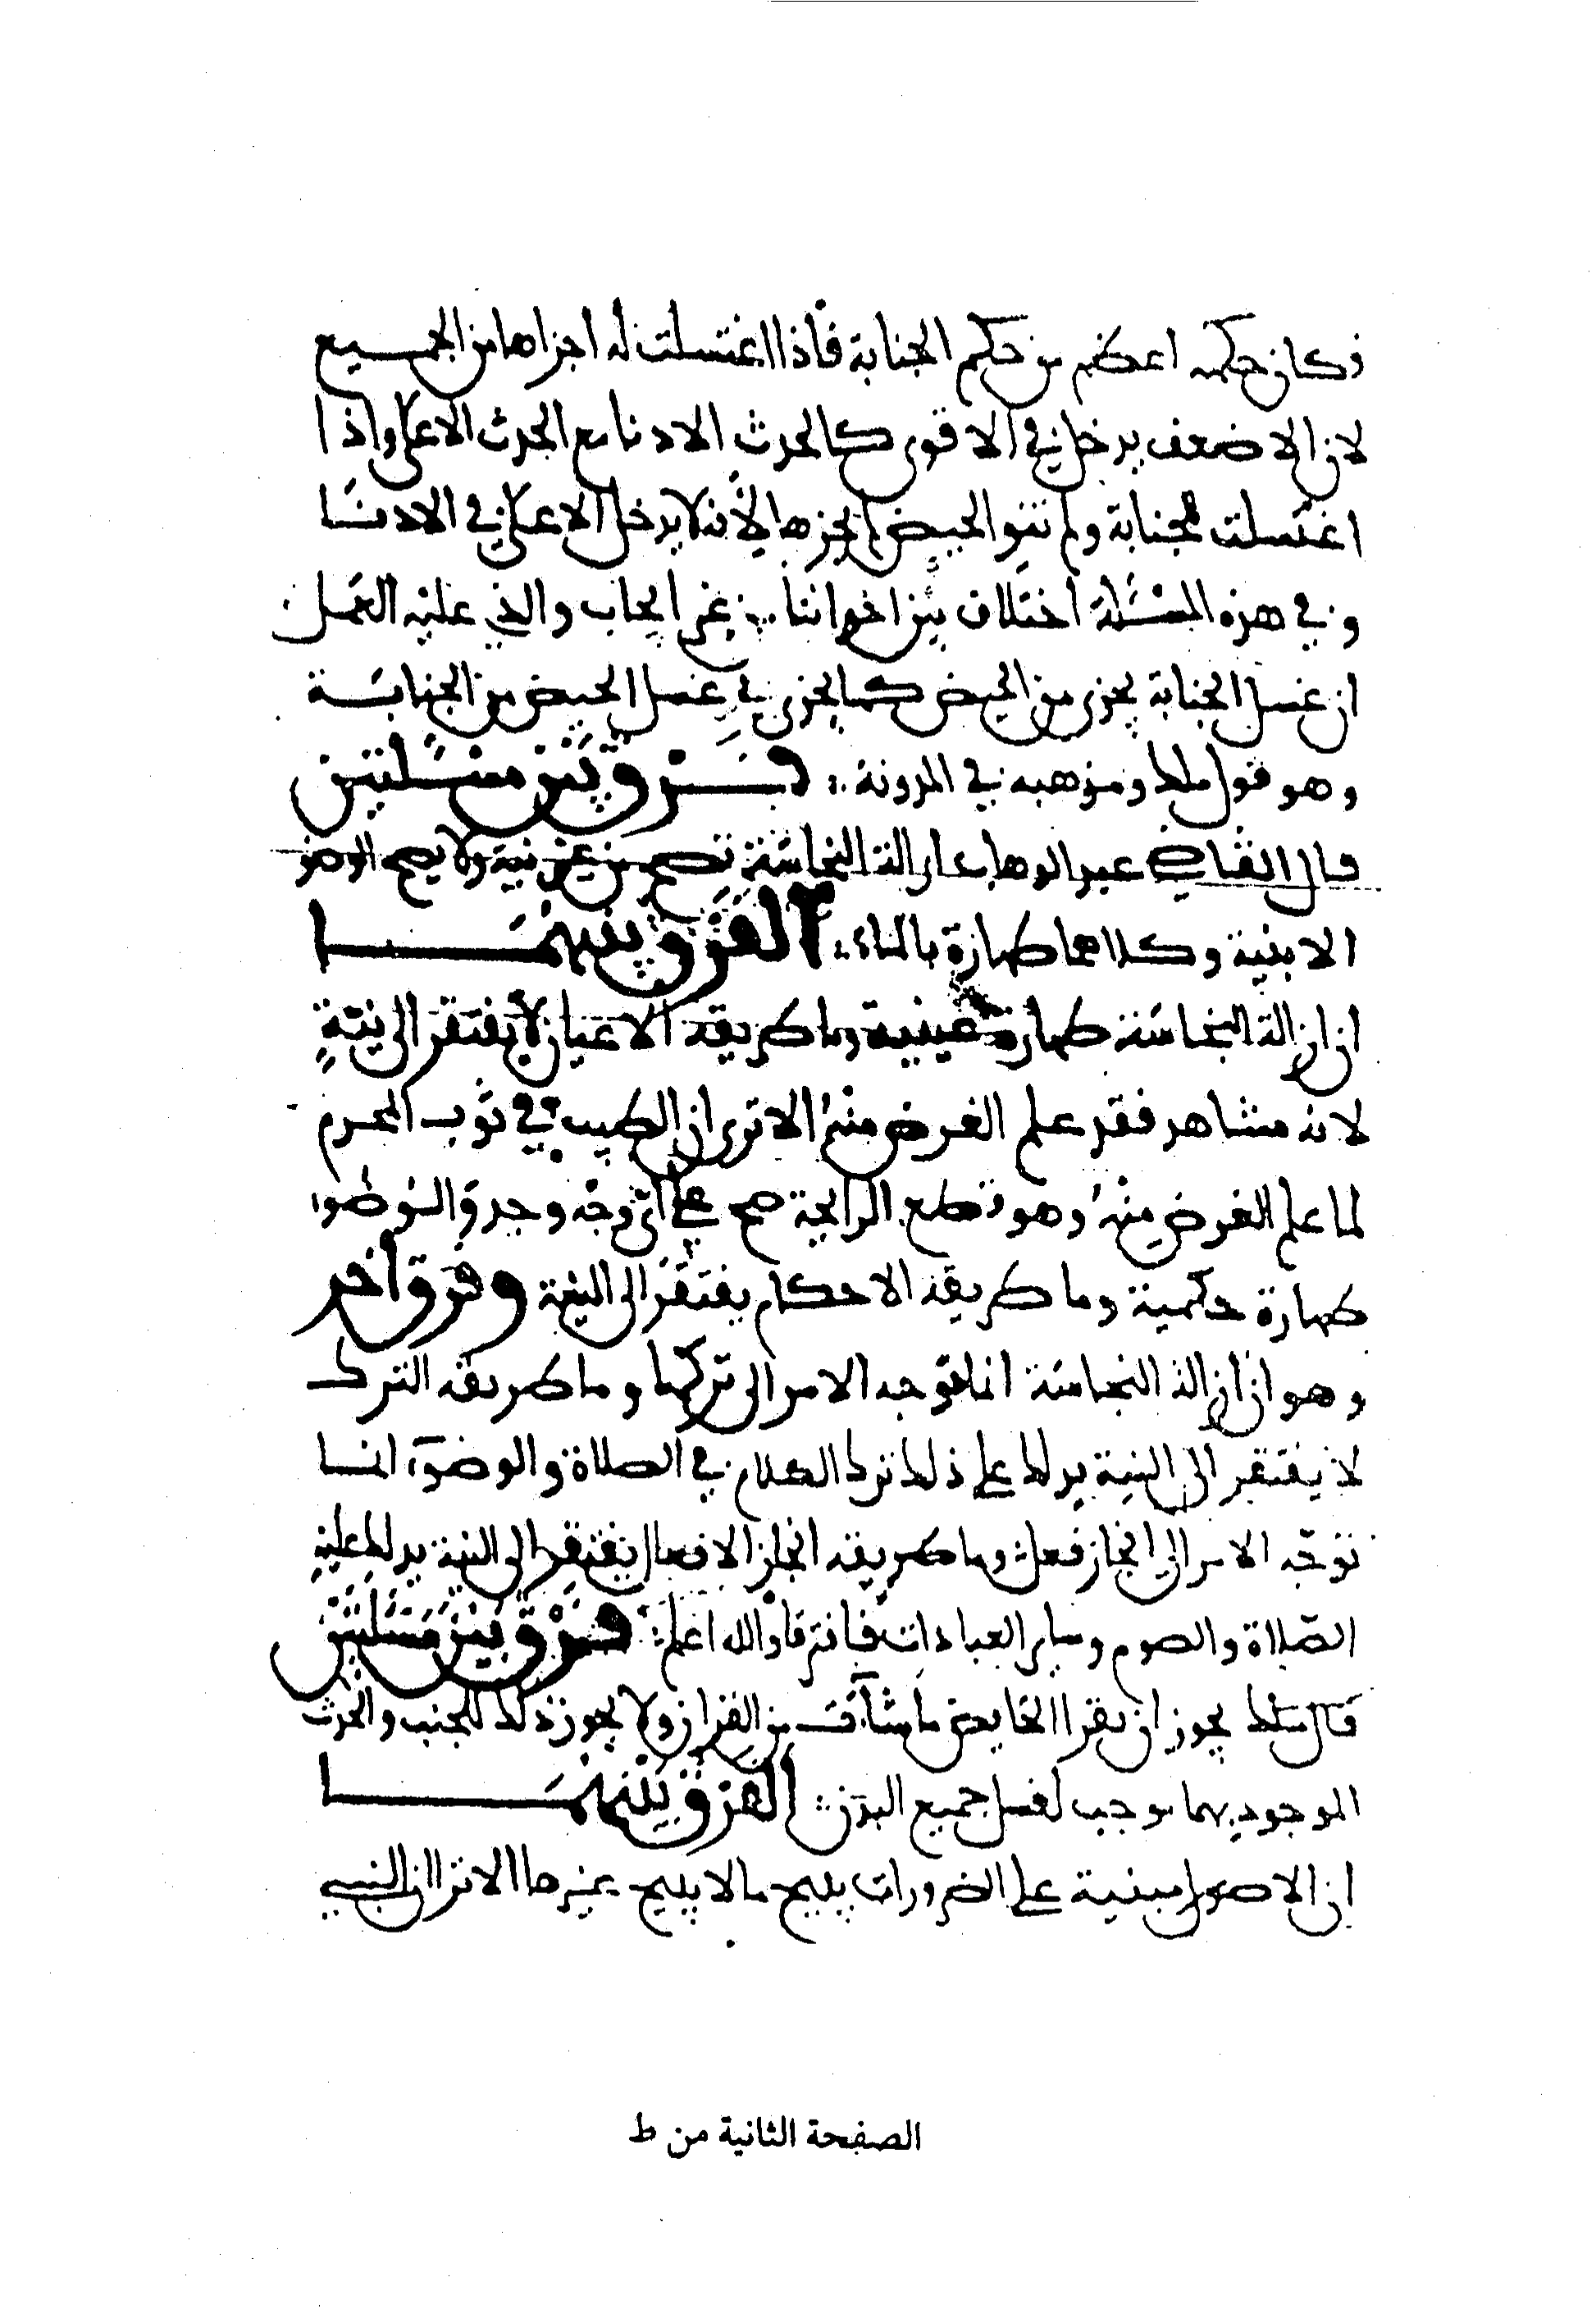 فكان حكمه اعظم من حكم الجنابة فاذا اغتسلت له اجزاها من الجميع
لان الاضعف يدخل في الاقوى كالحدث الادنا مع الحدث الاعلى واذا
اغتسلت للجنابة ولم تنو الحيض لم يجزها لأنه لا يدخل الاعلى في الادنا
وفي هذه المسئلة اختلاف بين اخواننا والذي عليه العمل
ان غسل الجنابة يجزي من الحيض كما يجزي في غسل الحيض من الجنابة
وهو قول ملك ومذهبه في المدونة فرق بين مسئلتين
قال القاضي عبد الوهاب ازالة النجاسة تصح من غير نية ولا يصح الوضو
الا بنية وكلاهما طهارة بالماء الفرق بينهما
ان ازالة النجاسة طهارة عينية وما طريقه الاعيان لا يفتقر الى نية
لانه مشاهد فقد علم الغرض منه الا ترى ان الطيب في ثوب المحرم
لما علم الغرض منه وهو قطع الرايحة صح على اي وجه وجد والوضوا
طهارة حكمية وما طريقه الاحكام يفتقر الى النية وفرق اخر
وهو ان ازالة النجاسة انما توجه الامر الى تركها وما طريقه الترك
لا يفتقر الى النية يدلك على ذلك ترك الكلام في الصلاة والوضوء انما
توجه الامر الى انجاز فعل وما طريقه انجاز الافعال يفتقر الى النية يدلك عليه
الصلاة والصوم وساير العبادات فافترقا والله اعلم فرق بين مسئلتين
قال ملك يجوز ان تقرا الحايض ما شآت من القران ولا يجوز ذلك للجنب والحدث
الموجود بهما موجب لغسل جميع البدن الفرق بينهما
ان الاصول مبنية على الضرورات يبيح ما لا يبيح غيرها الا ترا ان النبي
الصفحة الثانية من ط